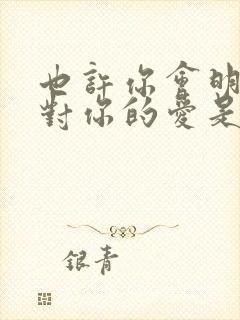 也許你會明
對你的愛是
銀青